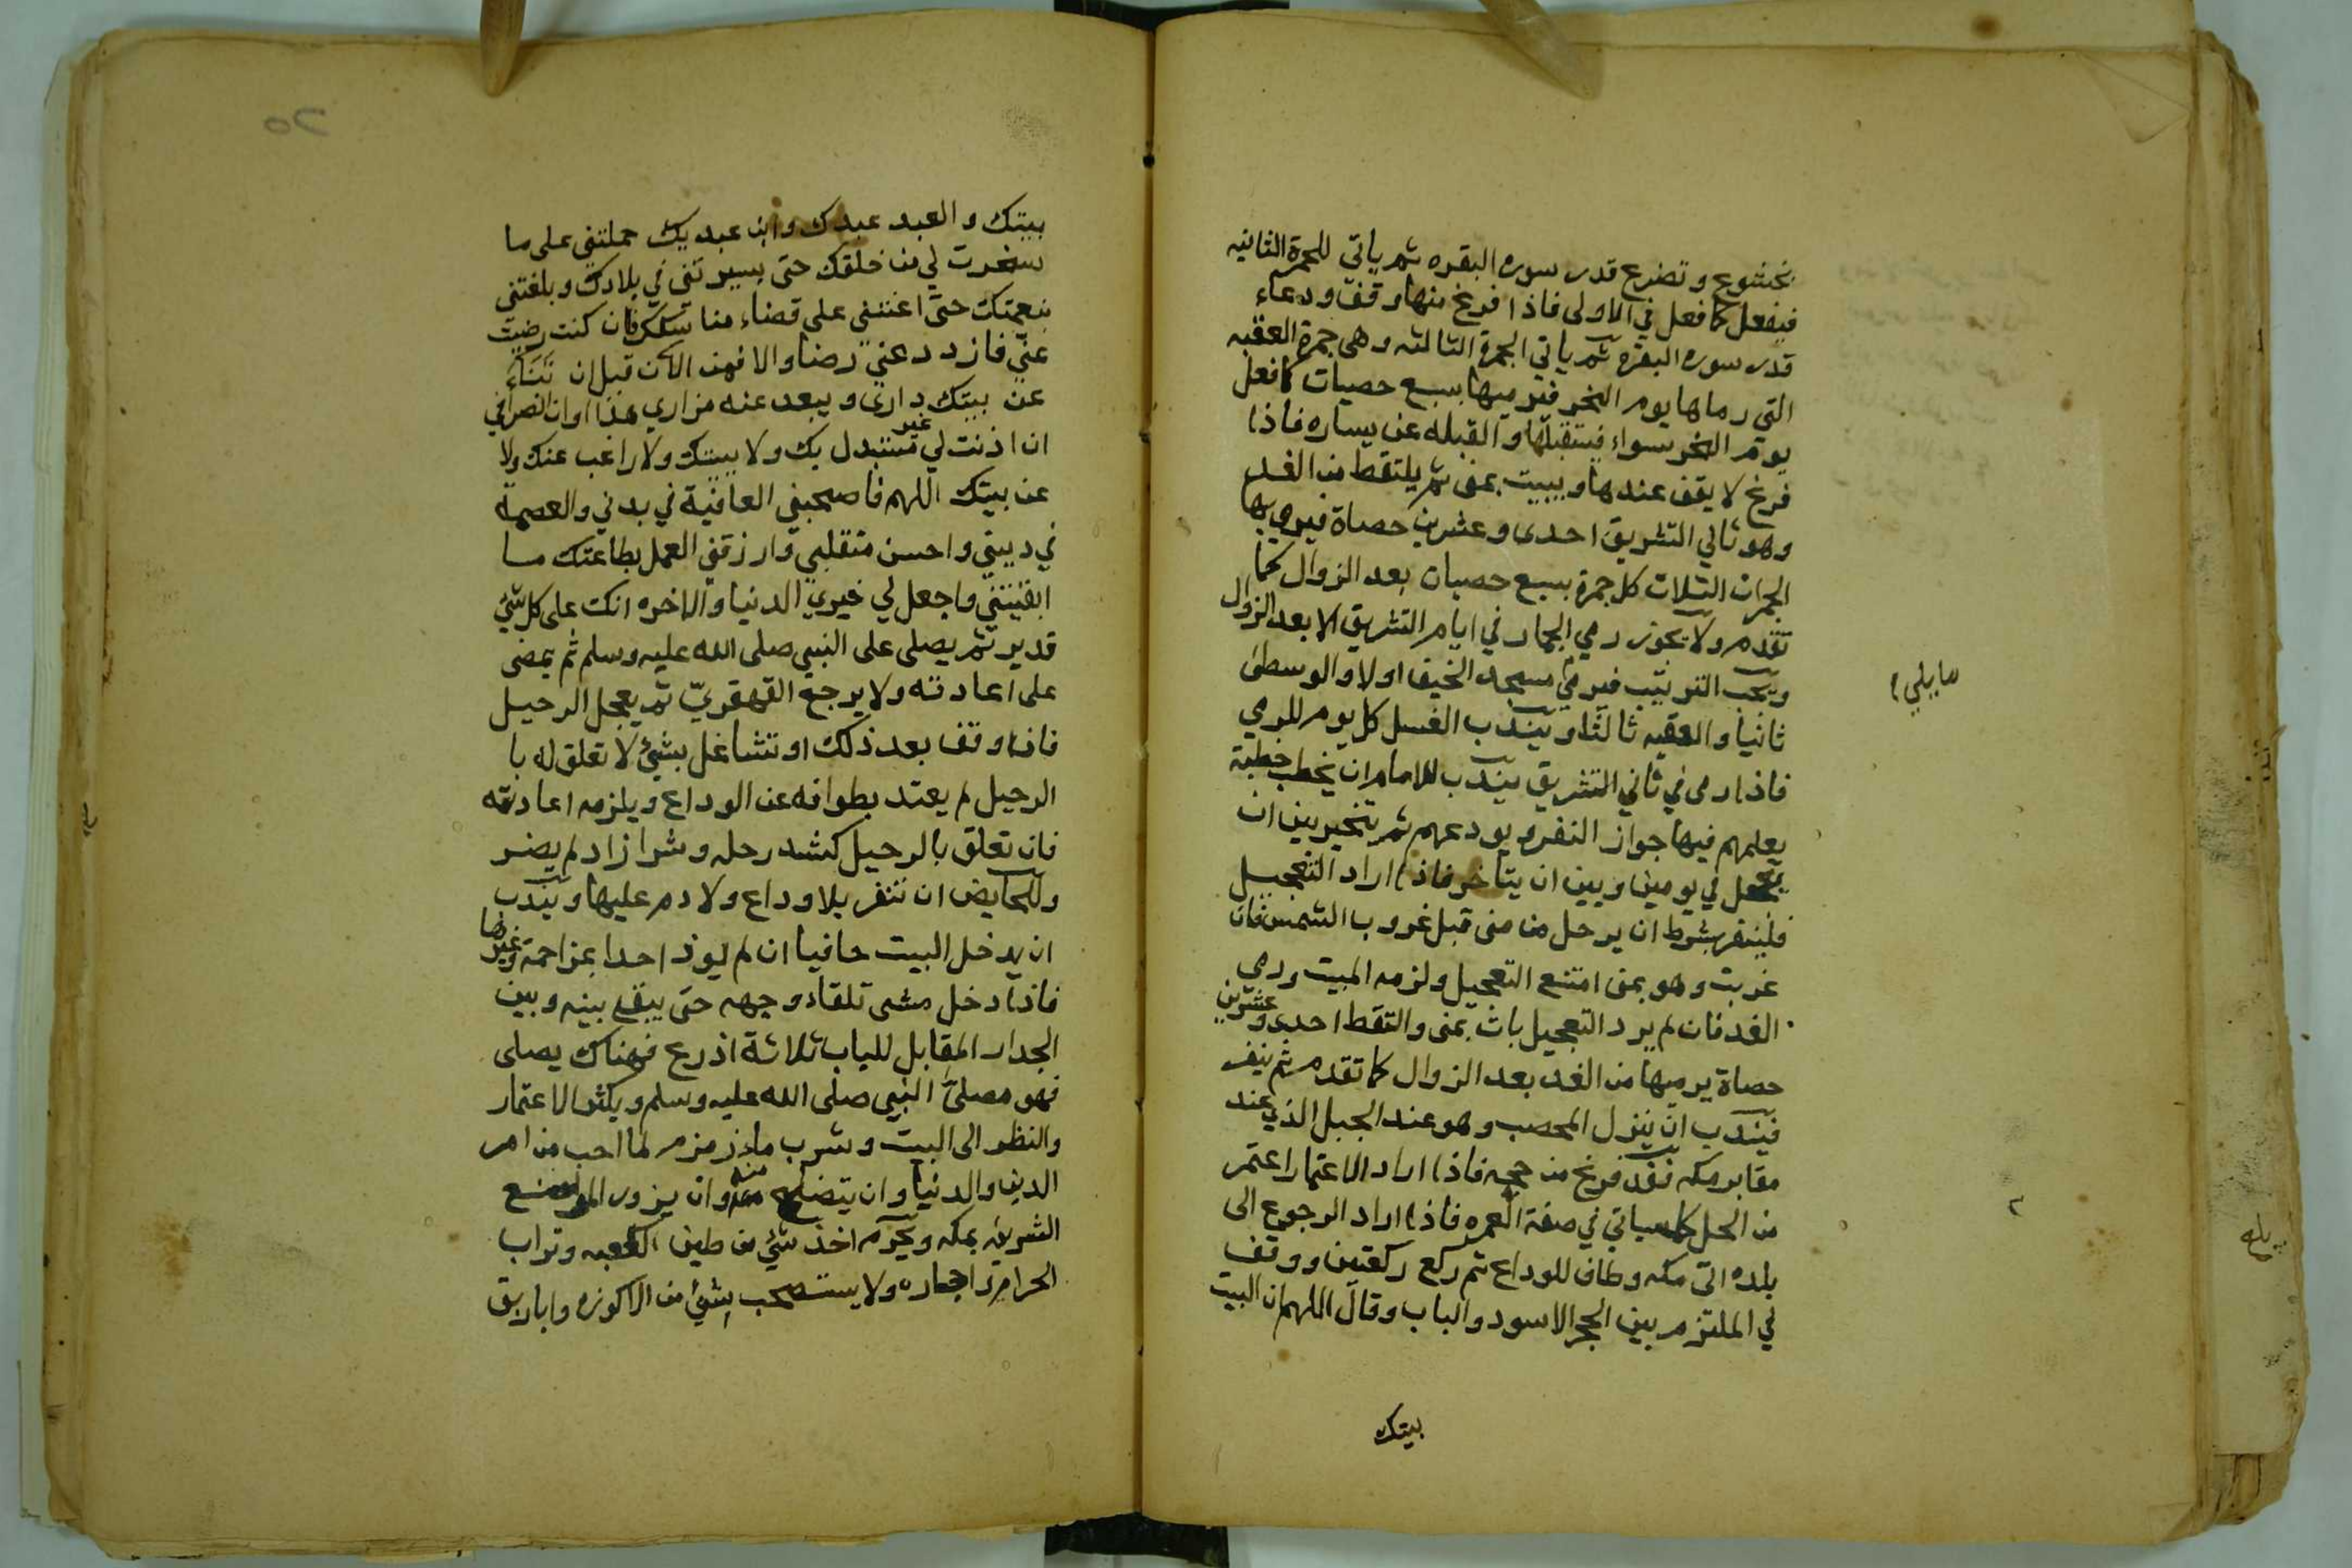 بخشوع وتضرع قدر سوره البقره ثم ياتي للجمرة الثانيه
فيفعل كما فعل في الاولى فاذا فرغ منها وقف ودعاء
قدر سوره البقره ثم ياتي الجمرة الثالثه وهى جمرة العقبه
التي رماها يوم النحر فيرميها بسبع حصيات كما فعل
يوم النحر سواء فيستقبلها والقبله عن يساره فاذا
فرغ لا يقف عندها ويبيت بمنى ثم يلتقط من الغد
وهو ثاني التشريق احدى وعشرين حصاة فيرمي بها
الجمرات الثلاث كل جمرة بسبع حصيات بعد الزوال كما
تقدم ولا يجوز رمي الجمار في ايام التشريق الا بعد الزوال
ويجب الترتيب فيرمي مسجد الخيف اولا والوسطى
ما يلي
ثانيا والعقبه ثالثا ويندب الغسل كل يوم للرمي
فاذا رمى في ثاني التشريق يندب للامام ان يخطب خطبة
يعلمهم فيها جواز النفر ويودعهم ثم يتخير بين ان
يتعجل في يومين وبين ان يتاخر فاذا اراد التعجيل
فلينفر بشرط ان يرحل من منى قبل غروب الشمس فان
غربت وهو بمنى امتنع التعجيل ولزمه المبيت ورمي
الغد فان لم يرد التعجيل بات بمنى والتقط احدى وعشرين
حصاة يرميها من الغد بعد الزوال كما تقدم ثم ينفر
فيندب ان ينزل المحصب وهو عند الجبل الذي عند
مقابر مكه فقد فرغ من حجه فاذا اراد الاعتمار اعتمر
من الحل كما سياتي في صفة العمره فاذا اراد الرجوع الى
بلده اتى مكه وطاف للوداع ثم ركع ركعتين ووقف
في الملتزم بين الحجر الاسود والباب وقال اللهم ان البيت
بيتك
٢٥
بيتك والعبد عبدك وابن عبديك حملتني على ما
سخرت لي من خلقك حتى سيرتني في بلادك وبلغتني
بنعمتك حتى اعنتني على قضاء مناسكك فان كنت رضيت
عنّي فازدد عني رضا والا فمن الآن قبل ان تناى
عن بيتك داري ويبعد عنه مزاري هذا اوان انصرافي
ان اذنت لي غير مستبدل بك ولا ببيتك ولا راغب عنك ولا
عن بيتك اللهم فاصحبني العافية في بدني والعصمة
في ديني واحسن منقلبي وارزقني العمل بطاعتك ما
ابقيتني واجعل لي خيري الدنيا والاخره انك على كل شئ
قدير ثم يصلى على النبي صلى الله عليه وسلم ثم يمضى
على اعادته ولا يرجع القهقري ثم يعجل الرحيل
فان وقف بعد ذلك او تشاغل بشئ لا تعلق له با
الرحيل لم يعتد بطوافه عن الوداع ويلزمه اعادته
فان تعلق بالرحيل كشد رحله وشرا زاد لم يضر
وللحايض ان تنفر بلا وداع ولا دم عليها ويندب
ان يدخل البيت حافيا ان لم يوذ احدا بمزاحمة وغيرها
فاذا دخل مشى تلقاء وجهه حتى يبقى بينه وبين
الجدار المقابل للباب ثلاثة اذرع فهناك يصلى
فهو مصلى النبي صلى الله عليه وسلم ويكثر الاعتمار
والنظر الى البيت وشرب ماء زمزم لما احب من امر
الدين والدنيا وان يتضلع منه وان يزور المواضع
الشريفه بمكه ويحرم اخذ شئ من طين الكعبه وتراب
الحرام واحجاره ولا يستصحب بشئ من الاكوزه واباريق